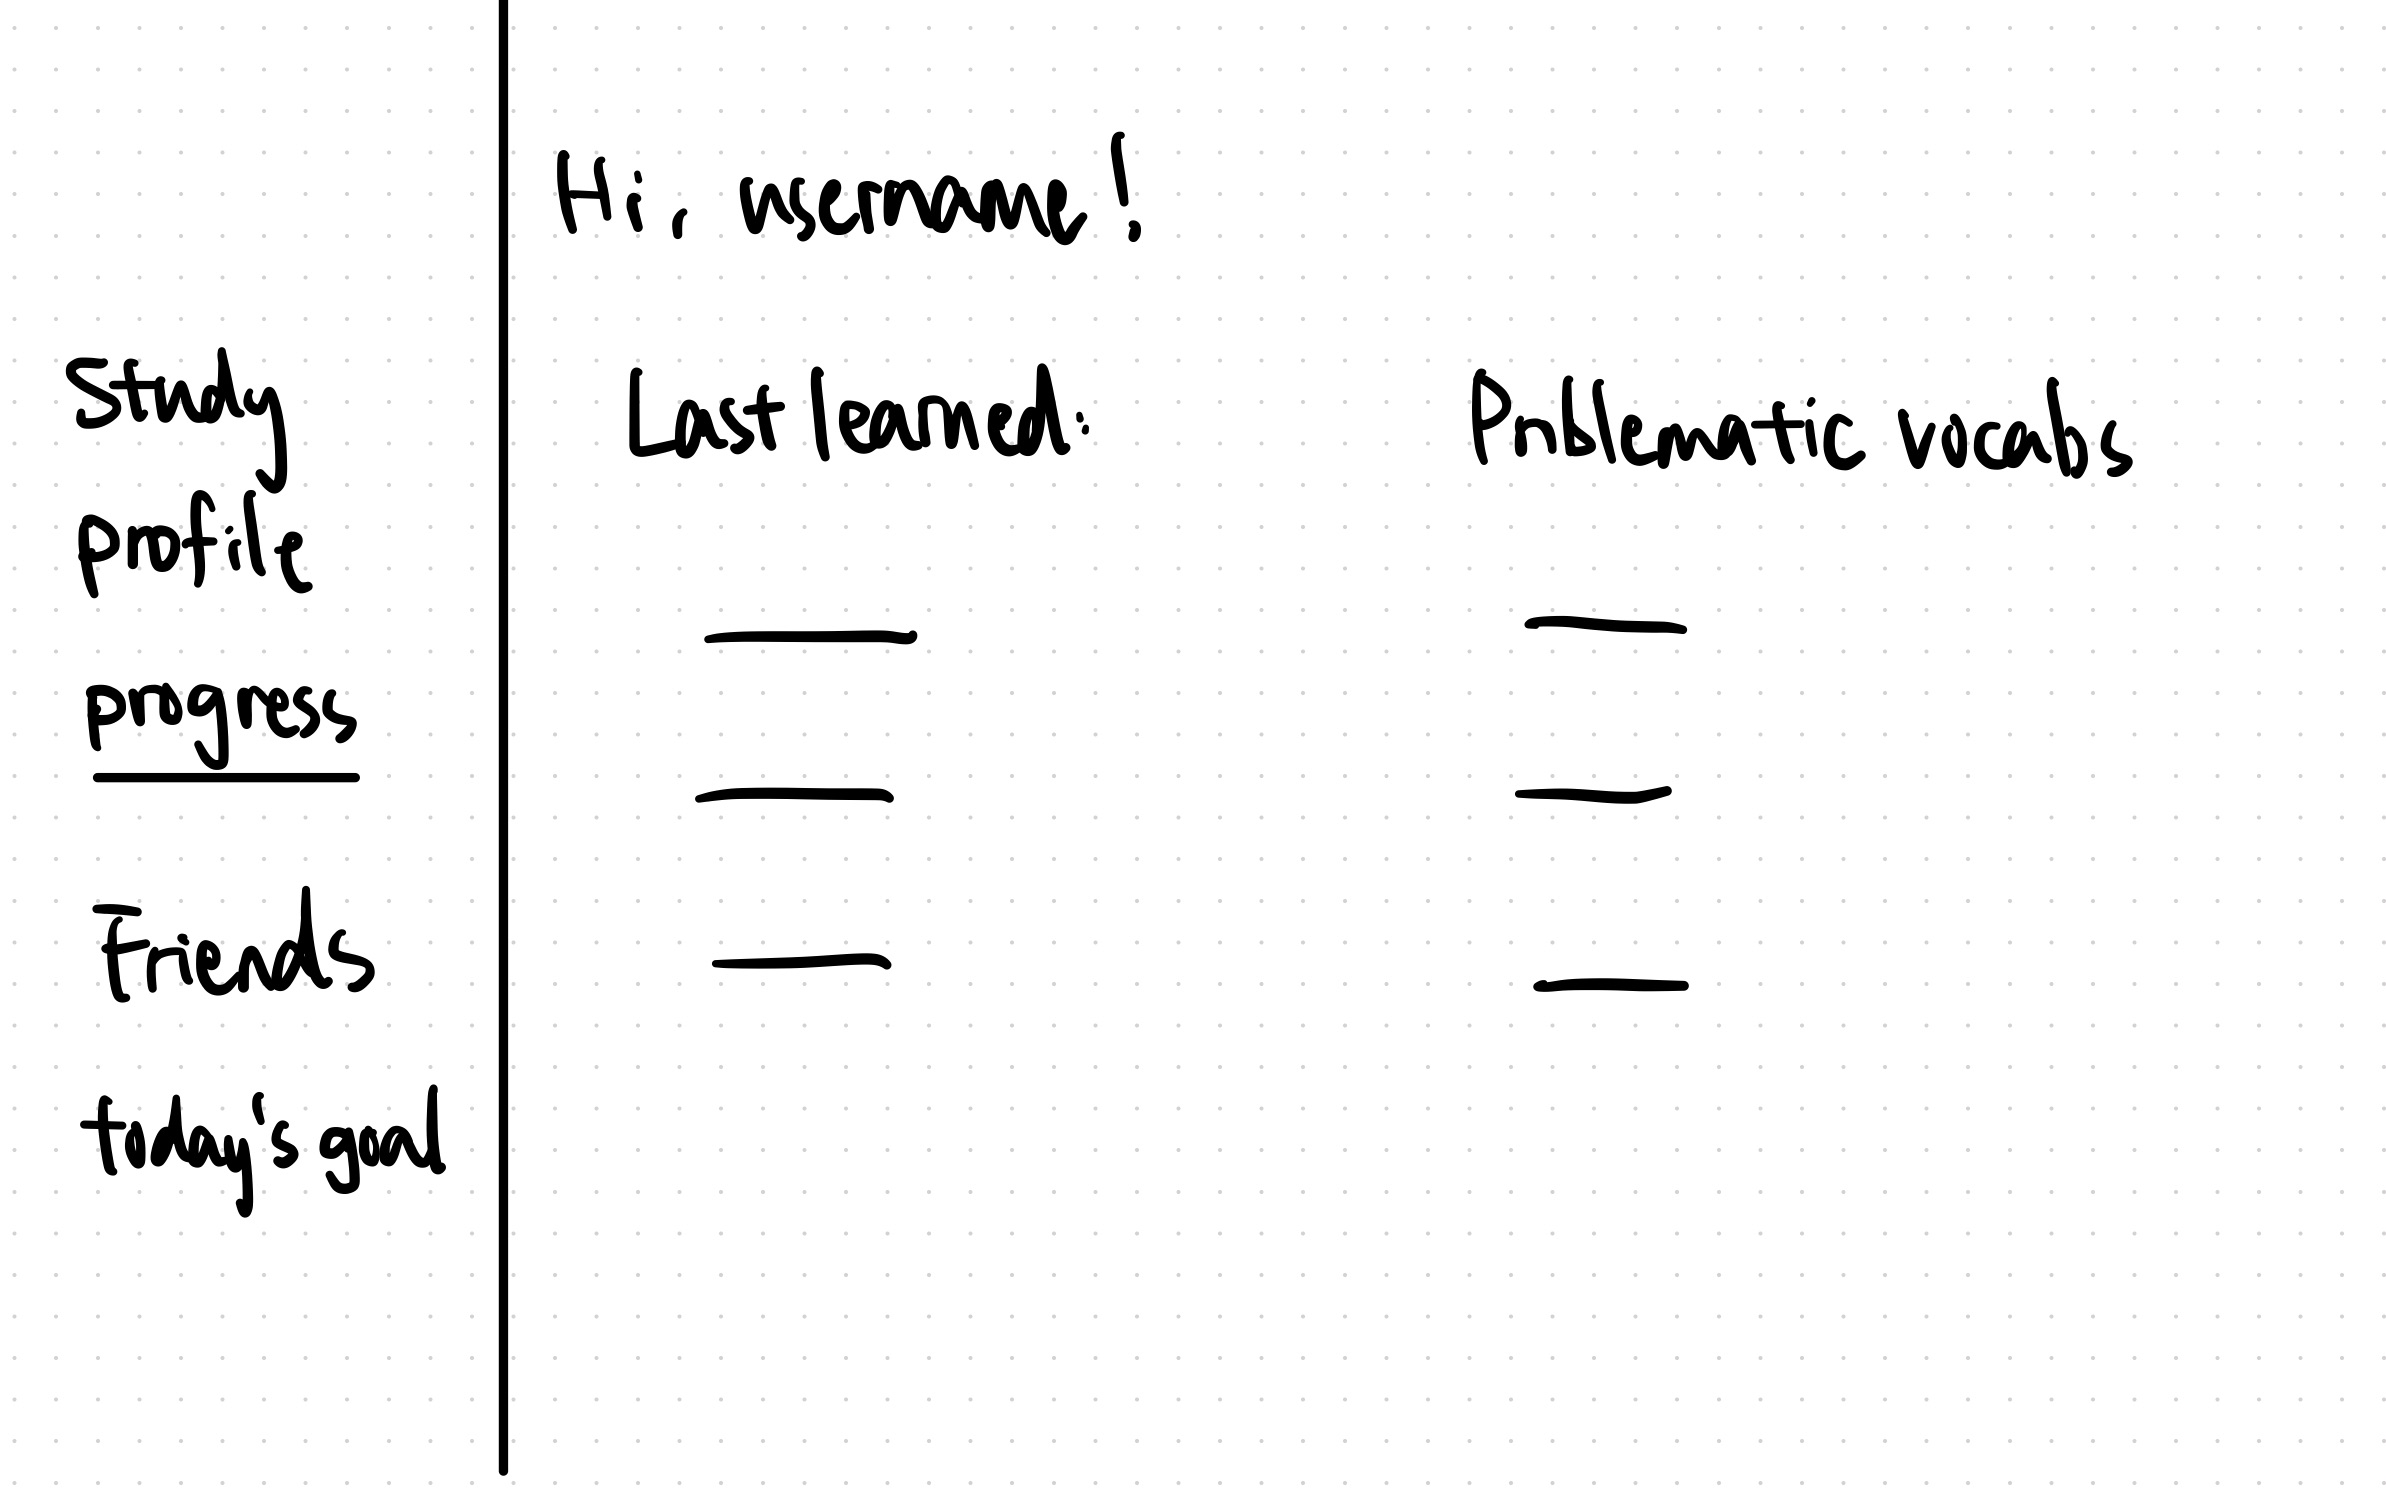 Study
profile
progress
Friends
today's goal
Hi, username!
Last learned:
Problematic vocabs